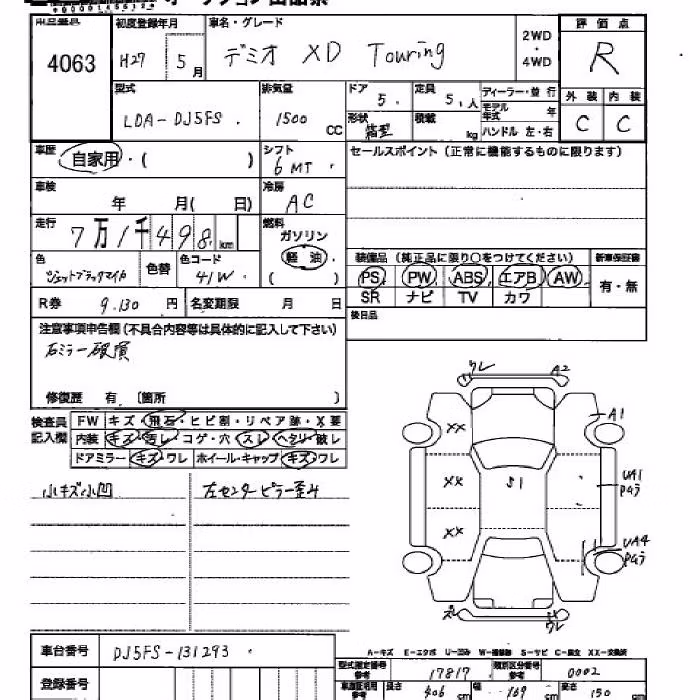 初度登録年月 車名・グレード 評価点
4063 H27 5月 デミオ XD Touring 2WD・4WD R
型式 排気量 ドア 定員 ディーラー・並行 外装 内装
LDA-DJ5FS 1500 CC 5 5人 モデル年式 年 C C
形状 箱型 積載 kg ハンドル 左・右
車歴 自家用・( ) シフト 6MT セールスポイント(正常に機能するものに限ります)
車検 年 月( 日) 冷房 AC
走行 7万1千498km 燃料 ガソリン
軽油・
( )
色 ジェットブラックマイカ 色替 色コード 41W
装備品(純正品に限り○をつけてください) 新車保証書
PS PW ABS エアB AW 有・無
SR ナビ TV カワ
R券 9.130円 名変期限 月 日 後日品
注意事項申告欄(不具合内容等は具体的に記入して下さい)
右ミラー破損
修復歴 有 〔箇所 〕
検査員記入欄 FW キズ・飛石・ヒビ割・リペア跡・X要
内装 キズ・汚レ・コゲ・穴・スレ・ヘタリ・破レ
ドアミラー キズ・ワレ ホイール・キャップ キズ・ワレ
小キズ小凹 左センターピラー歪み
ワレ A2
XX A1
XX S1 UA1
XX UA4
A-キズ E-エクボ U-凹み W-補修跡 S-サビ C-腐食 XX-交換済
車台番号 DJ5FS-131293
型式指定番号 参考 17817 類別区分番号 参考 0002
登録番号 車庫証明用 参考 長さ 406 cm 幅 169 cm 高さ 150 cm